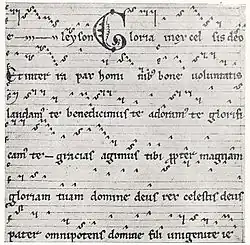 e — — n leyson Gloria in excel sis deo
Et in terra pax homi nibꝰ bone voluntatis
laudamꝰ te benedicimus te adoramꝰ te glorifi
camꝰ te gracias agimus tibi propter magnam
gloriam tuam domine deus rex celestis deus
pater omnipotens domine fili unigenite ie